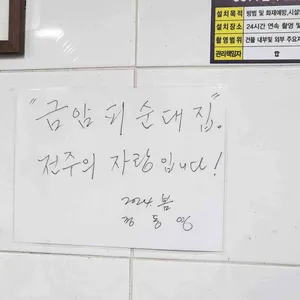 설치목적 방범 및 화재예방, 시설
설치장소 24시간 연속 촬영
촬영범위 건물 내부및 외부 주요
관리책임자
"금암피순대집".
전주의 자랑입니다!
2024. 봄
정동영